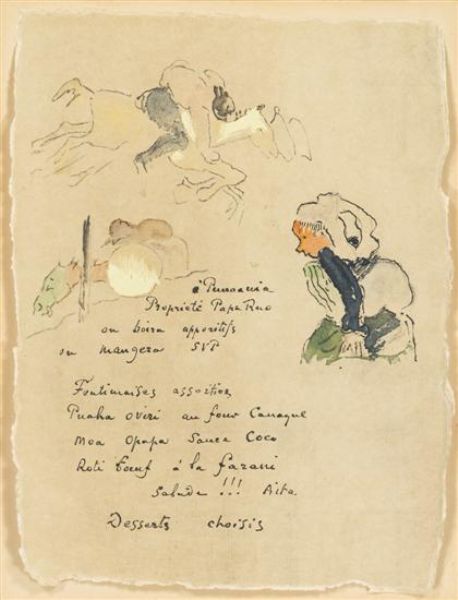 à Punoauia
Proprieté Papa Ruo
on boira apperitifs
on mangera SVP
Fontimaises assorties
Puaka oviri au four Canaque
Moa Opapa Sauce Coco
Roti Bœuf à la farani
Salade !!! Aita
Desserts choisis